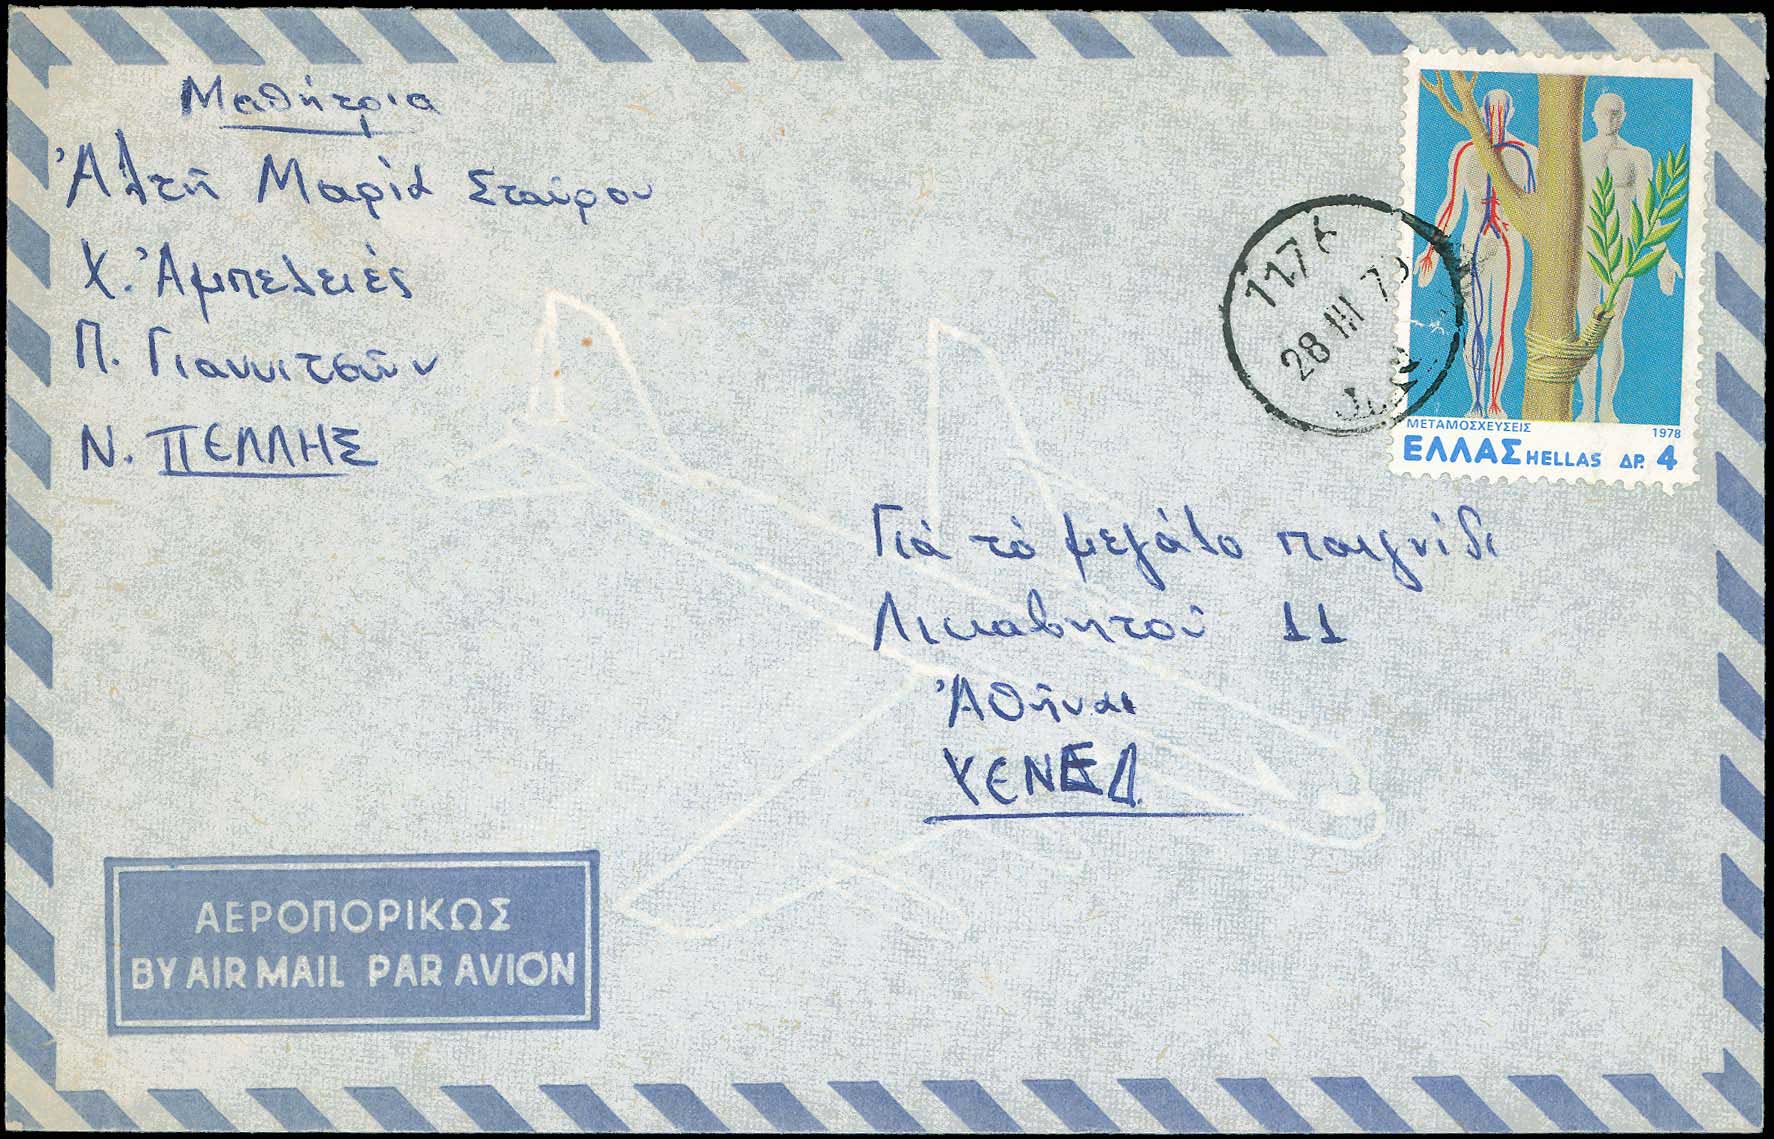 Μαθήτρια
Ἀλτῆ Μαρία Σταύρου
Χ. Ἀμπελειές
Π. Γιαννιτσῶν
Ν. ΠΕΛΛΗΣ
1176
28 III 79
ΜΕΤΑΜΟΣΧΕΥΣΕΙΣ 1978
ΕΛΛΑΣ HELLAS ΔΡ. 4
Γιά τό μεγάλο παιχνίδι
Λικαβητοῦ 11
Ἀθῆναι
ΥΕΝΕΔ
ΑΕΡΟΠΟΡΙΚΩΣ
BY AIR MAIL PAR AVION